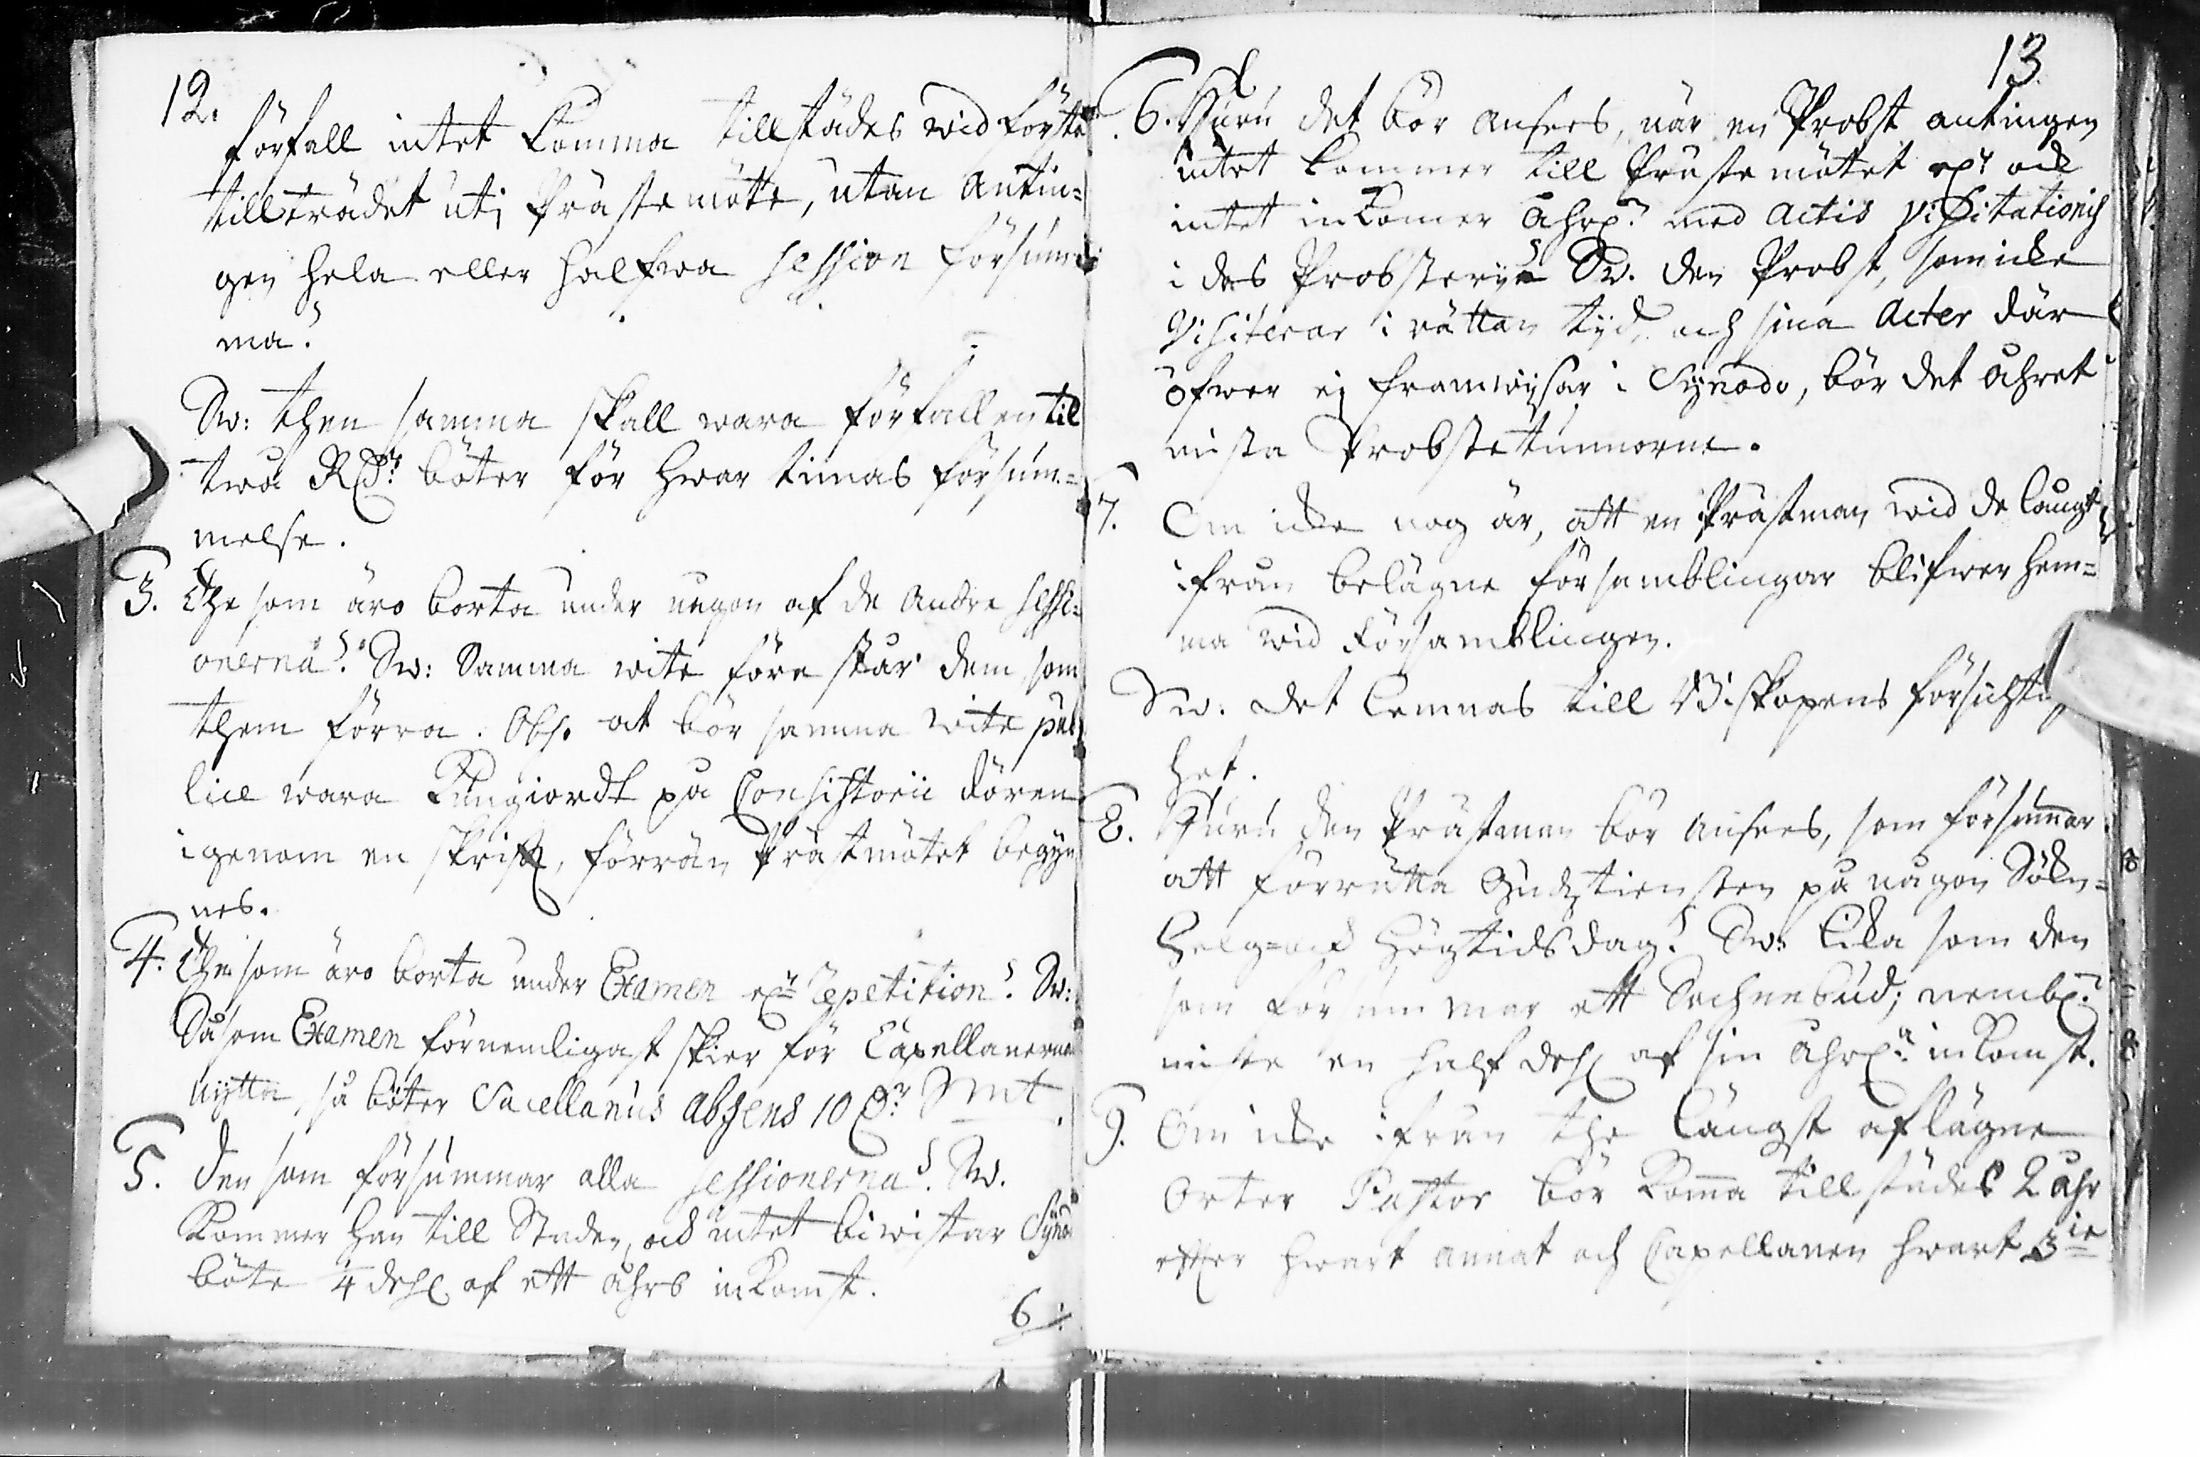 12.
förfall intet komma tillstädes wid första
tillträdet uti Prästemötte, utan Antin=
gen hela eller halfwa session försum
ma?
Sw: then samma skall wara förfallen til
twå Rdr böter för hwar timas försum=
melse.
3. The som äro borta under någon af de Andre sessi=
onerna? Sw: Samma wite före står dem, som
them förra. Obs. at bör samma wite pub
lice wara kungiordt på Consistorii dören
igenom en skrift, förrän Prästmötet begyn
nes.
4. The som äro borta under Examen och repetition? Sw:
Såsom Examen förnemligast skier för Capellanernas
nytta, så böter Sacellanus absens 10 dr Smt.
5. Den som försummar alla sessionerna? Sw.
kommer han till Staden, och intet biwistar Synod
böte 4 dehl af ett åhrs inkomst.
6.
13
6. Huru det bör ansees, när en Probst antingen
intet kommer till Prästemötet och
intet inkomer åhrl. med Actis visitationis
i des Probsterye? Sw. Den Probst, som icke
visiterar i rättan tijd, och sina Acter där
öfwer ej framwijsar i Synodo, bör det åhret
mista Probstetunnorne.
7. Om icke nog är, att en Prästman wid de långt
ifrån belägne församblingar blifwer hem=
ma wid församblingen.
Sw. Det lemnas till Biskopens försichtig
het.
8. Huru den Prästman bör ansees, som försummar
att förrätta Gudztiensten på någon Sökn=
Helg= och Högtidsdag? Sw: Lika som den
som försummar ett Sochnebud; nembl.
miste en half dehl af sin åhrl. inkomst.
9. Om icke ifrån the längst aflägne
Orter Pastor bör komma tillstädes 2 åhr
efter hwart annat och Capellanen hwart 3ie